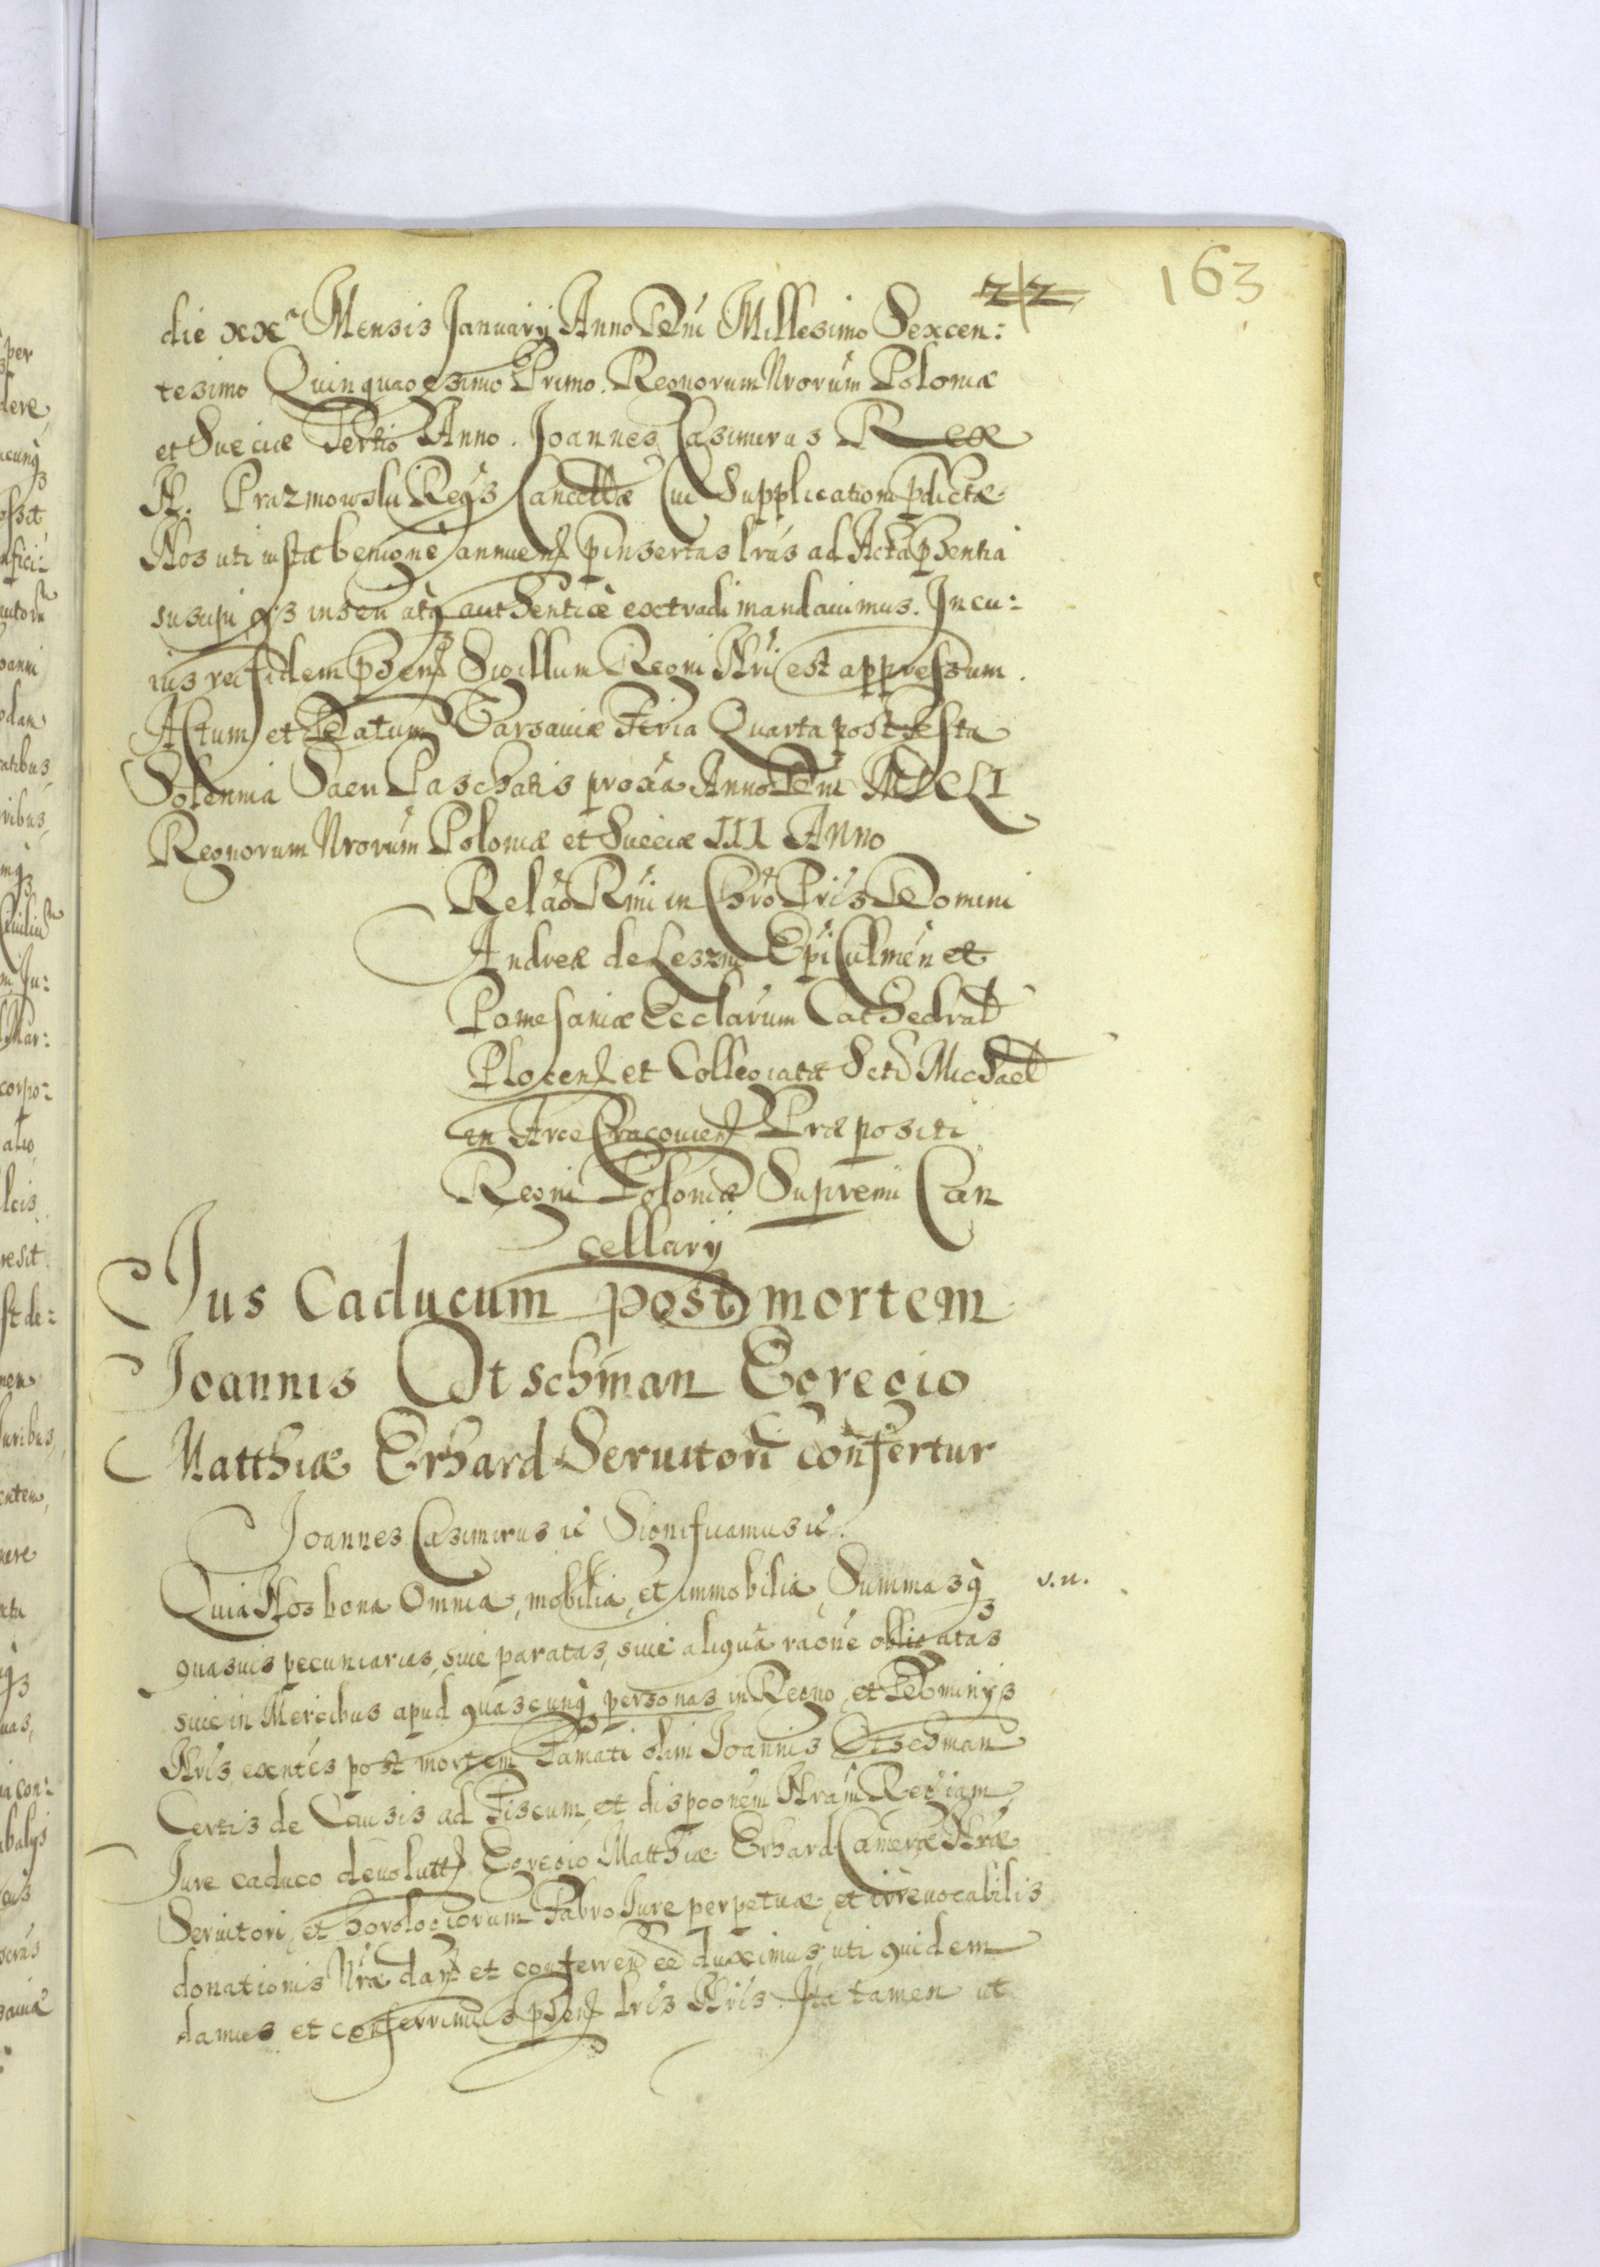 163
212
die xxª Mensis January Anno Dni Millesimo Sexcen:
tesimo Quinquagesimo Primo. Regnorum Nrorum Poloniæ
et Sueciæ Tertio Anno. Joannes Casimirus Rex
N. Prazmowski Regs Cancellæ Cui Supplicationi pdictæ
Nos uti iustæ benigne annuen pinsertas lras ad Acta pħentia
suscipi ineri atq authenticè extradi mandavimus. In cu:
ius rei fidem pħen Sigillum Regni Nri est appressum.
Actum et Datum Varsaviæ Feria Quarta post Festa
Solennia Sacri Paschatis proxa Anno Dni MDCLI
Regnorum Nrorum Poloniæ et Sueciæ III Anno
Relao Rmi in Chro Pris Domini
Andreæ de Leszno Epi Culmen et
Pomesaniæ Ecclarum Cathedral
Plocen et Collegiatæ Scti Michael
in Arce Cracovien Præpositi
Regni Poloniæ Supremi Can
cellary
Jus Caducum post mortem
Joannis Otschman Egregio
Matthiæ Erhard Servitori confertur
Joannes Casimirus ic Significamus ic.
Quia Nos bona Omnia, mobilia, et immobilia, Summasq v.n.
quasvis pecuniarias, sive paratas, sive aliqua raone obligatas
sive in Mercibus apud quascunq personas in Regno, et Dominys
Nris exntes post mortem Famati olim Joannis Otschman
Certis de Causis ad Fiscum, et disponem Nram Regiam
Jure caduco devolutt, Egregio Matthiæ Erhard Cameræ Nræ
Servitori, et horologiorum Fabro Jure perpetuæ, et irrevocabilis
donationis Nræ dan et conferren ee duximus, uti quidem
damus et conferrimus pħen lris Nris. Ita tamen ut